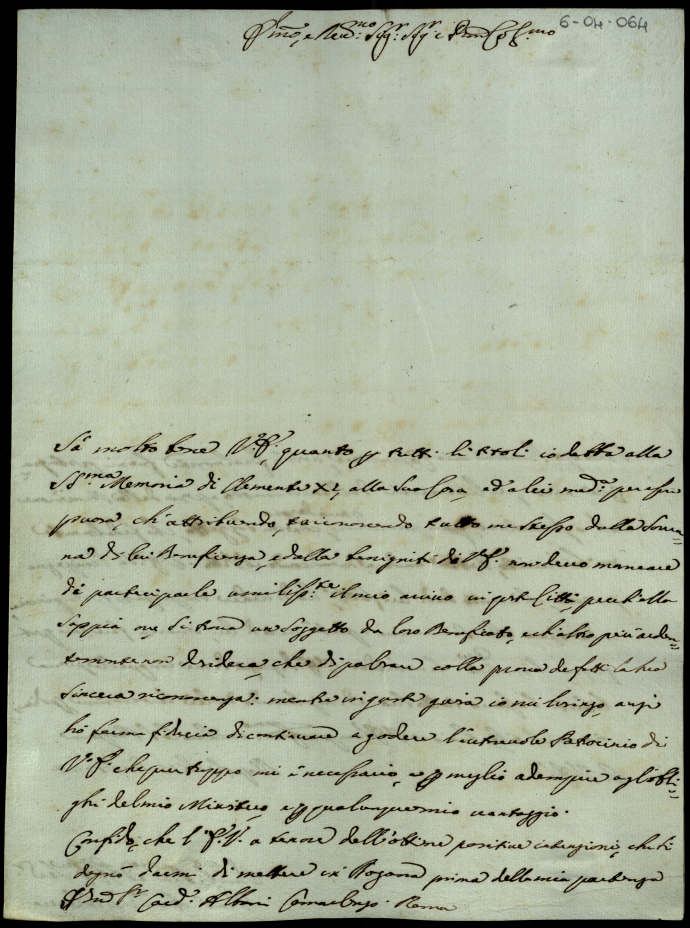 6-04-064
Em.mo, e Rev.mo Sig.r Sig.r e P.ron Col.mo
Sà molto bene V. E. quanto p tutti li titoli io debba alla
S.ma Memoria di Clemente XI, alla Sua Casa, ed a lei med.a per esser
che attribuendo, riconoscendo tutto me stesso dalla Sovra=
na di lui Beneficenza, e dalla benignità di V. E. non devo mancare
di parteciparle umiliss.te il mio arrivo in q.sta Città, perch'alla
Sappia ove si trova un Soggetto da loro Beneficato, e ch'altro più arden=
temente non desidera, che di palesare colla prova de fatti la sua
sincera riconoscenza: mentre in q.sta guisa io mi lusingo, anzi
hò ferma fiducia di continuare a godere l'autorevole Patrocinio di
V. E. che pur troppo mi è necessario, e p meglio adempire agl'obli=
ghi del mio Ministero, e p qualunque mio vantaggio.
Confido, che l'E. V. a tenore dell'ottime positive intenzioni, che si
degnò darmi di mettere in prima della mia partenza
Card.l Albani Camerlengo Roma